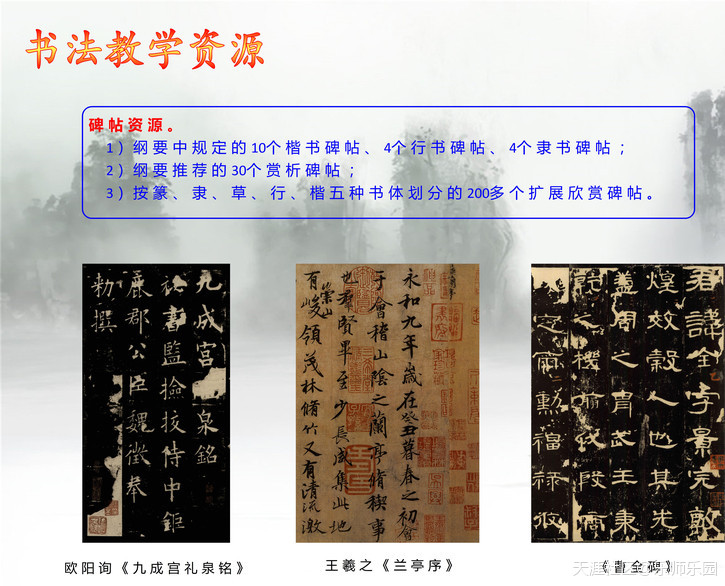 书法教学资源
碑帖资源。
1）纲要中规定的10个楷书碑帖、4个行书碑帖、4个隶书碑帖；
2）纲要推荐的30个赏析碑帖；
3）按篆、隶、草、行、楷五种书体划分的200多个扩展欣赏碑帖。
九成宮 泉銘
祕書監撿挍侍中鉅
鹿郡公臣魏徵奉
勑撰
永和九年歲在癸丑暮春之初會
于會稽山陰之蘭亭脩稧事
也羣賢畢至少長咸集此地
有崇山峻領茂林脩竹又有清流激
君諱全字景完敦
煌效穀人也其先
蓋周之冑武王秉
乾之機翦伐殷商
定爾勳福祿攸
欧阳询《九成宫礼泉铭》
王羲之《兰亭序》
《曹全碑》
天涯 师乐园